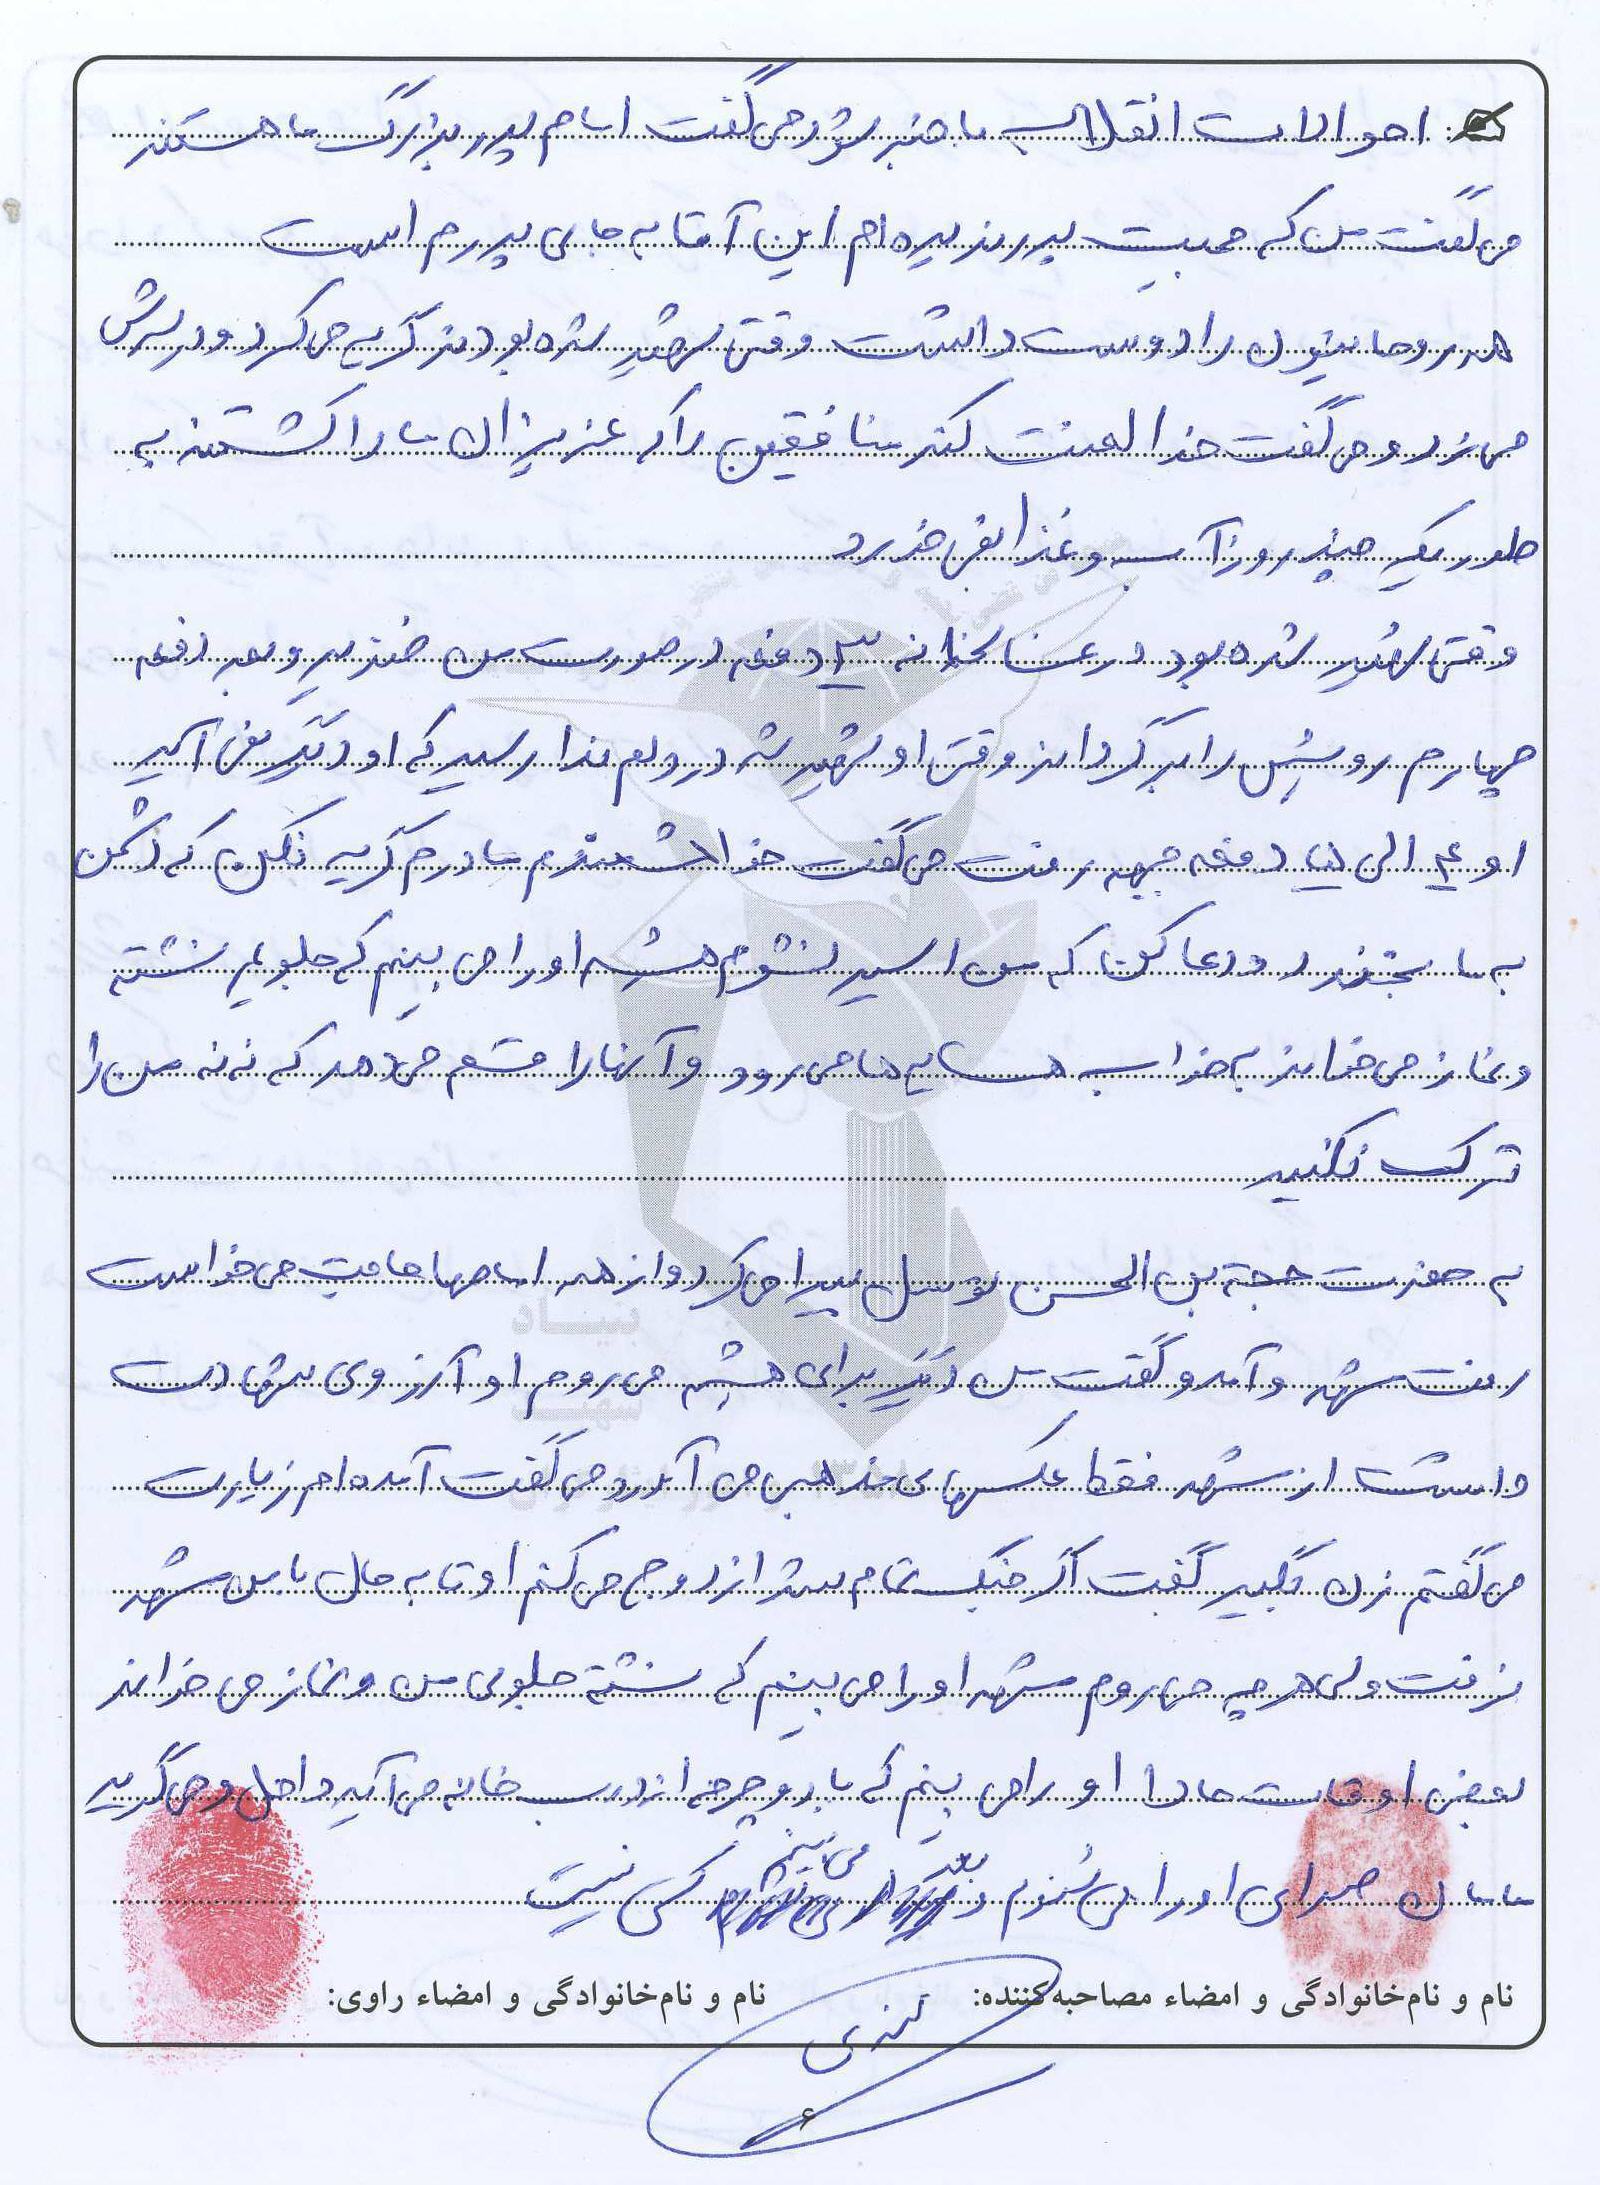 احوالات انقلاب با خبر شود می گفت امام پدر بزرگ ما هستند
می گفت من که محبت پدر ندیده ام این آقا به جای پدرم است
همه روحانیون را دوست داشت وقتی شهید شده بودند گریه می کرد و در سرش
می زد و می گفت خدا لعنت کند منافقین را که عزیزان ما را کشتند به
طوریکه چند روز آب و غذا نمی خورد
وقتی شهید شده بود در غسالخانه ۳ دفعه در صورت من خندید و بعد دفعه
چهارم رویش را برگرداند وقتی او شهید شد در دلم ندا رسید که او دیگر نمی آید
او ۴ الی دفعه جبهه رفت می گفت خدا مادرم گریه نکن که دشمن
به ما بخندد و دعا کن که من اسیر نشوم همیشه او را می بینم که جلویم نشسته
و نماز می خواند به خواب همسایه ها می رود و آنها را قسم می دهد که ننه من را
ترک نکنید
به حضرت حجة بن الحسن توسل پیدا می کرد و از همه امامها حاجت می خواست
رفت مشهد و آمد و گفت من دیگر برای همیشه می روم او آرزوی شهادت
داشت از مشهد فقط عکسهای مذهبی می آورد و می گفت آمده ام زیارت
می گفتم زن بگیر گفت اگر جنگ تمام شد ازدواج می کنم او تا به حال با من مشهد
نرفت ولی هر چه می روم مشهد او را می بینم که نشسته جلوی من و نماز می خواند
بعضی اوقات ها او را می بینم که با دوچرخه از درب خانه می آید داخل و می گوید
مامان صدای او را می شنوم و بعد می بینم کسی نیست
نام و نام خانوادگی و امضاء مصاحبه کننده: نام و نام خانوادگی و امضاء راوی:
۶
بنیاد
شهید